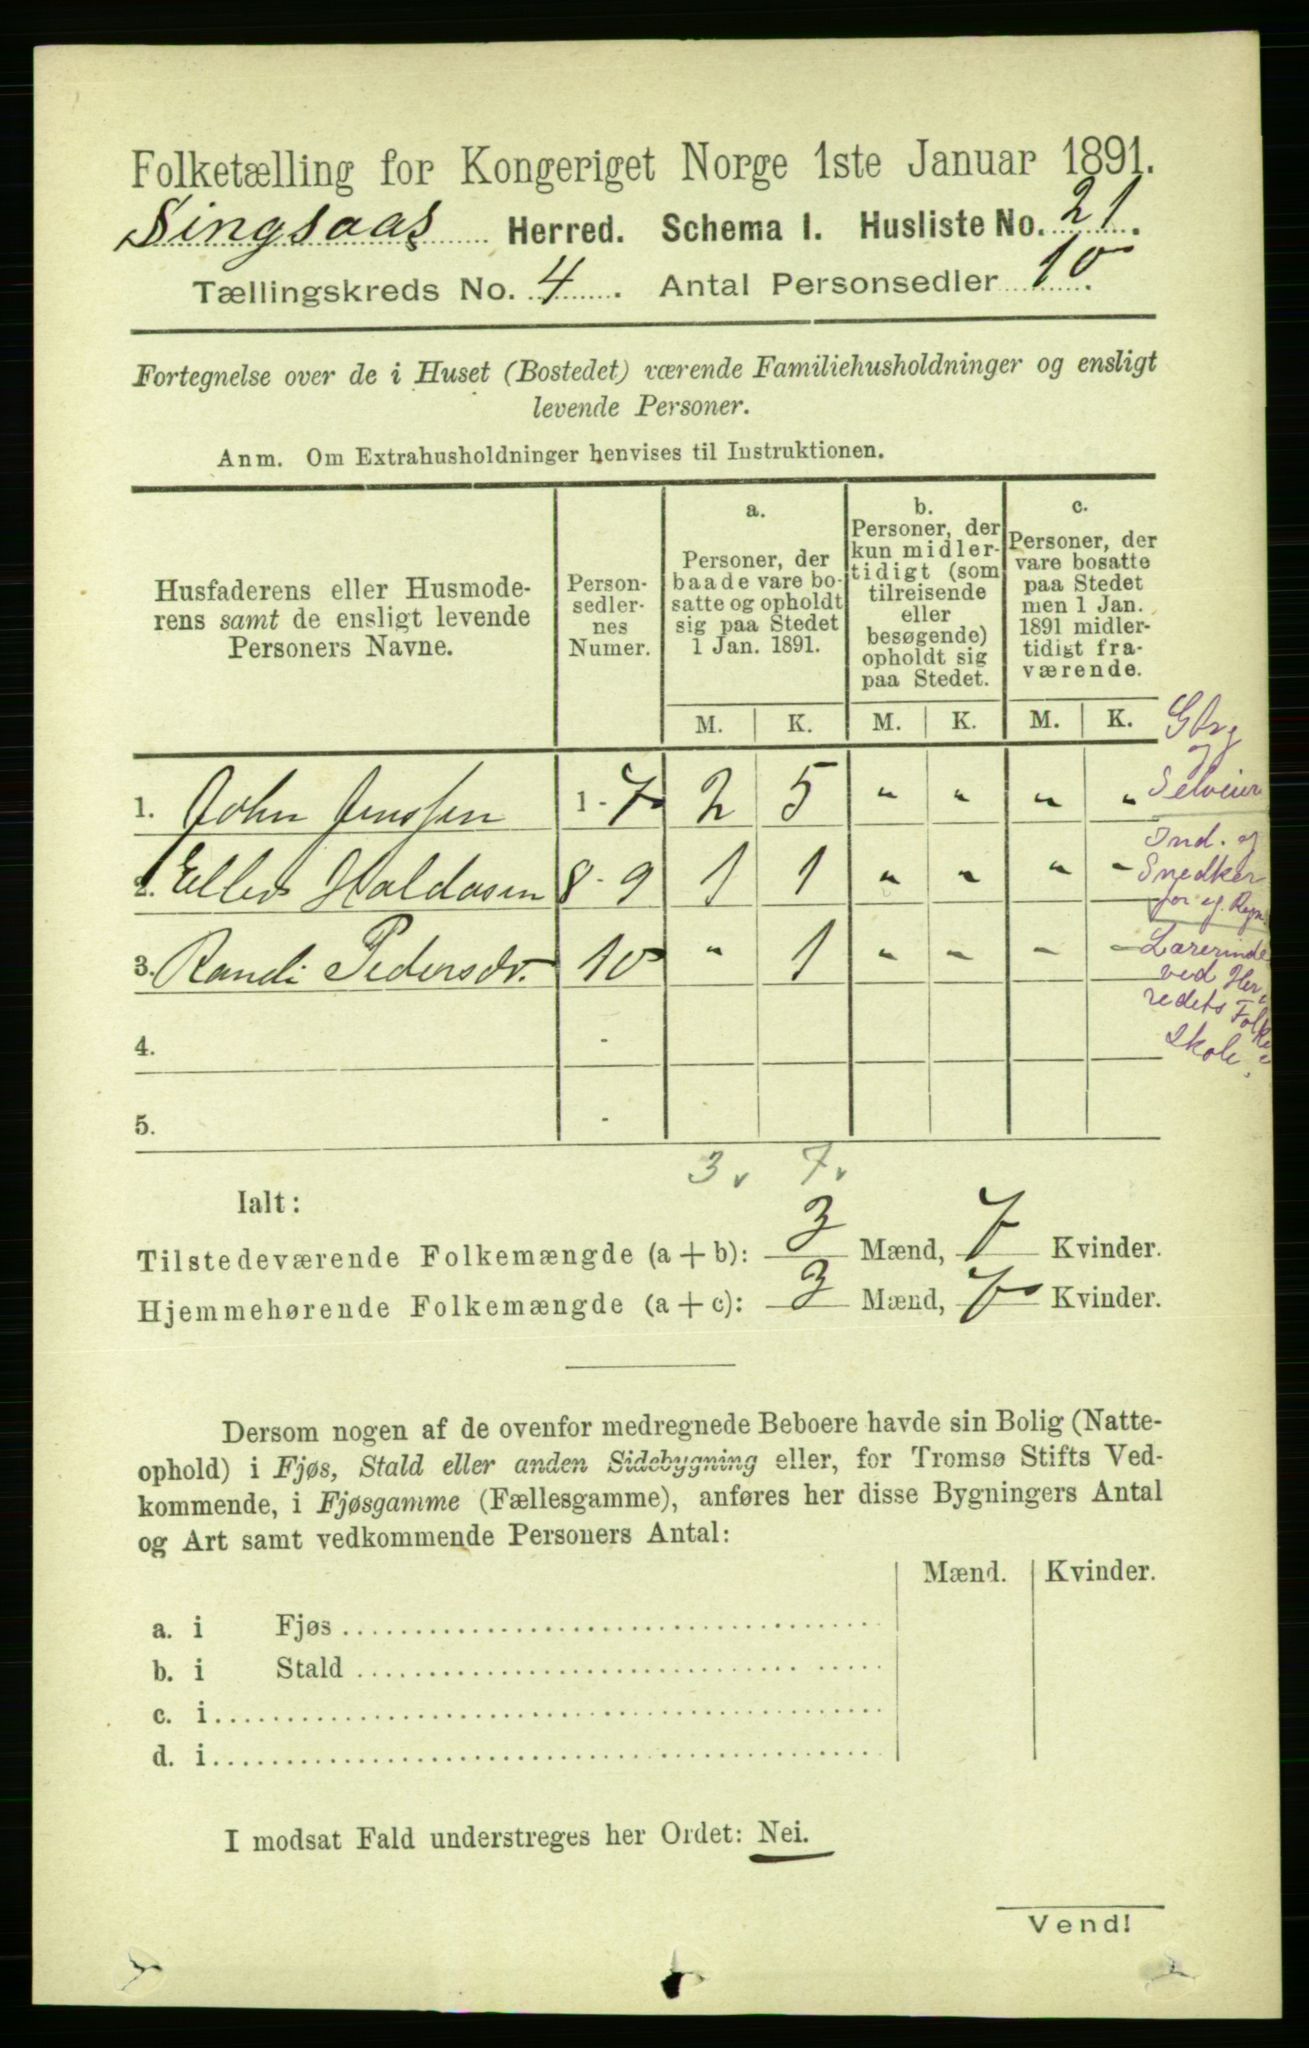 Folketælling for Kongeriget Norge 1ste Januar 1891.
Singsaas Herred. Schema I. Husliste No. 21.
Tællingskreds No. 4. Antal Personsedler 10.
Fortegnelse over de i Huset (Bostedet) værende Familiehusholdninger og ensligt
levende Personer.
Anm. Om Extrahusholdninger henvises til Instruktionen.
Husfaderens eller Husmode-
rens samt de ensligt levende
Personers Navne.
Person-
sedler-
nes
Numer.
a.
Personer, der
baade vare bo-
satte og opholdt
sig paa Stedet
1 Jan. 1891.
b.
Personer, der
kun midler-
tidigt (som
tilreisende
eller
besøgende)
opholdt sig
paa Stedet.
c.
Personer, der
vare bosatte
paa Stedet
men 1 Jan.
1891 midler-
tidigt fra-
værende.
M. K. M. K. M. K.
1. John Jenssen 1 - 7 2 5 " " " " Gbrg
og
Selveier
2. Ellev Haldosen 8 - 9 1 1 " " " " Ind. og
Snedker
for eg. Regn.
3. Randi Pedersdr. 10 " 1 " - - - Lærerinde
ved Her-
redets Folke
skole.
4. -
5. -
3 v 7 v
Ialt:
Tilstedeværende Folkemængde (a + b): 3 Mænd, 7 Kvinder.
Hjemmehørende Folkemængde (a + c): 3 Mænd, 7 Kvinder.
Dersom nogen af de ovenfor medregnede Beboere havde sin Bolig (Natte-
ophold) i Fjøs, Stald eller anden Sidebygning eller, for Tromsø Stifts Ved-
kommende, i Fjøsgamme (Fællesgamme), anføres her disse Bygningers Antal
og Art samt vedkommende Personers Antal:
Mænd. Kvinder.
a. i Fjøs
b. i Stald
c. i
d. i
I modsat Fald understreges her Ordet: Nei.
Vend!